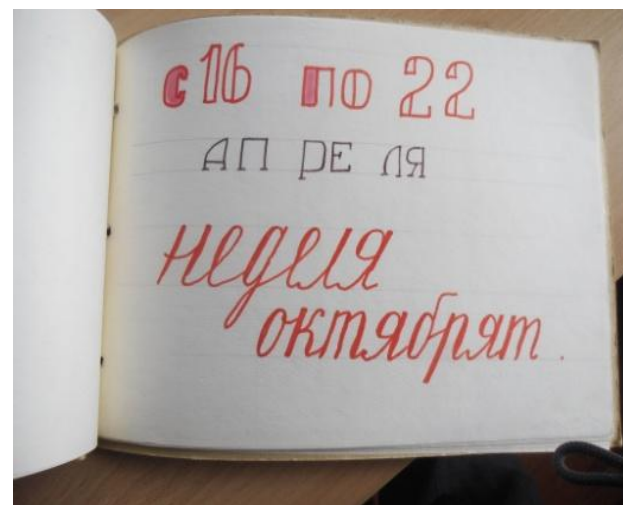 с 16 по 22
АПРЕЛЯ
неделя
октябрят.